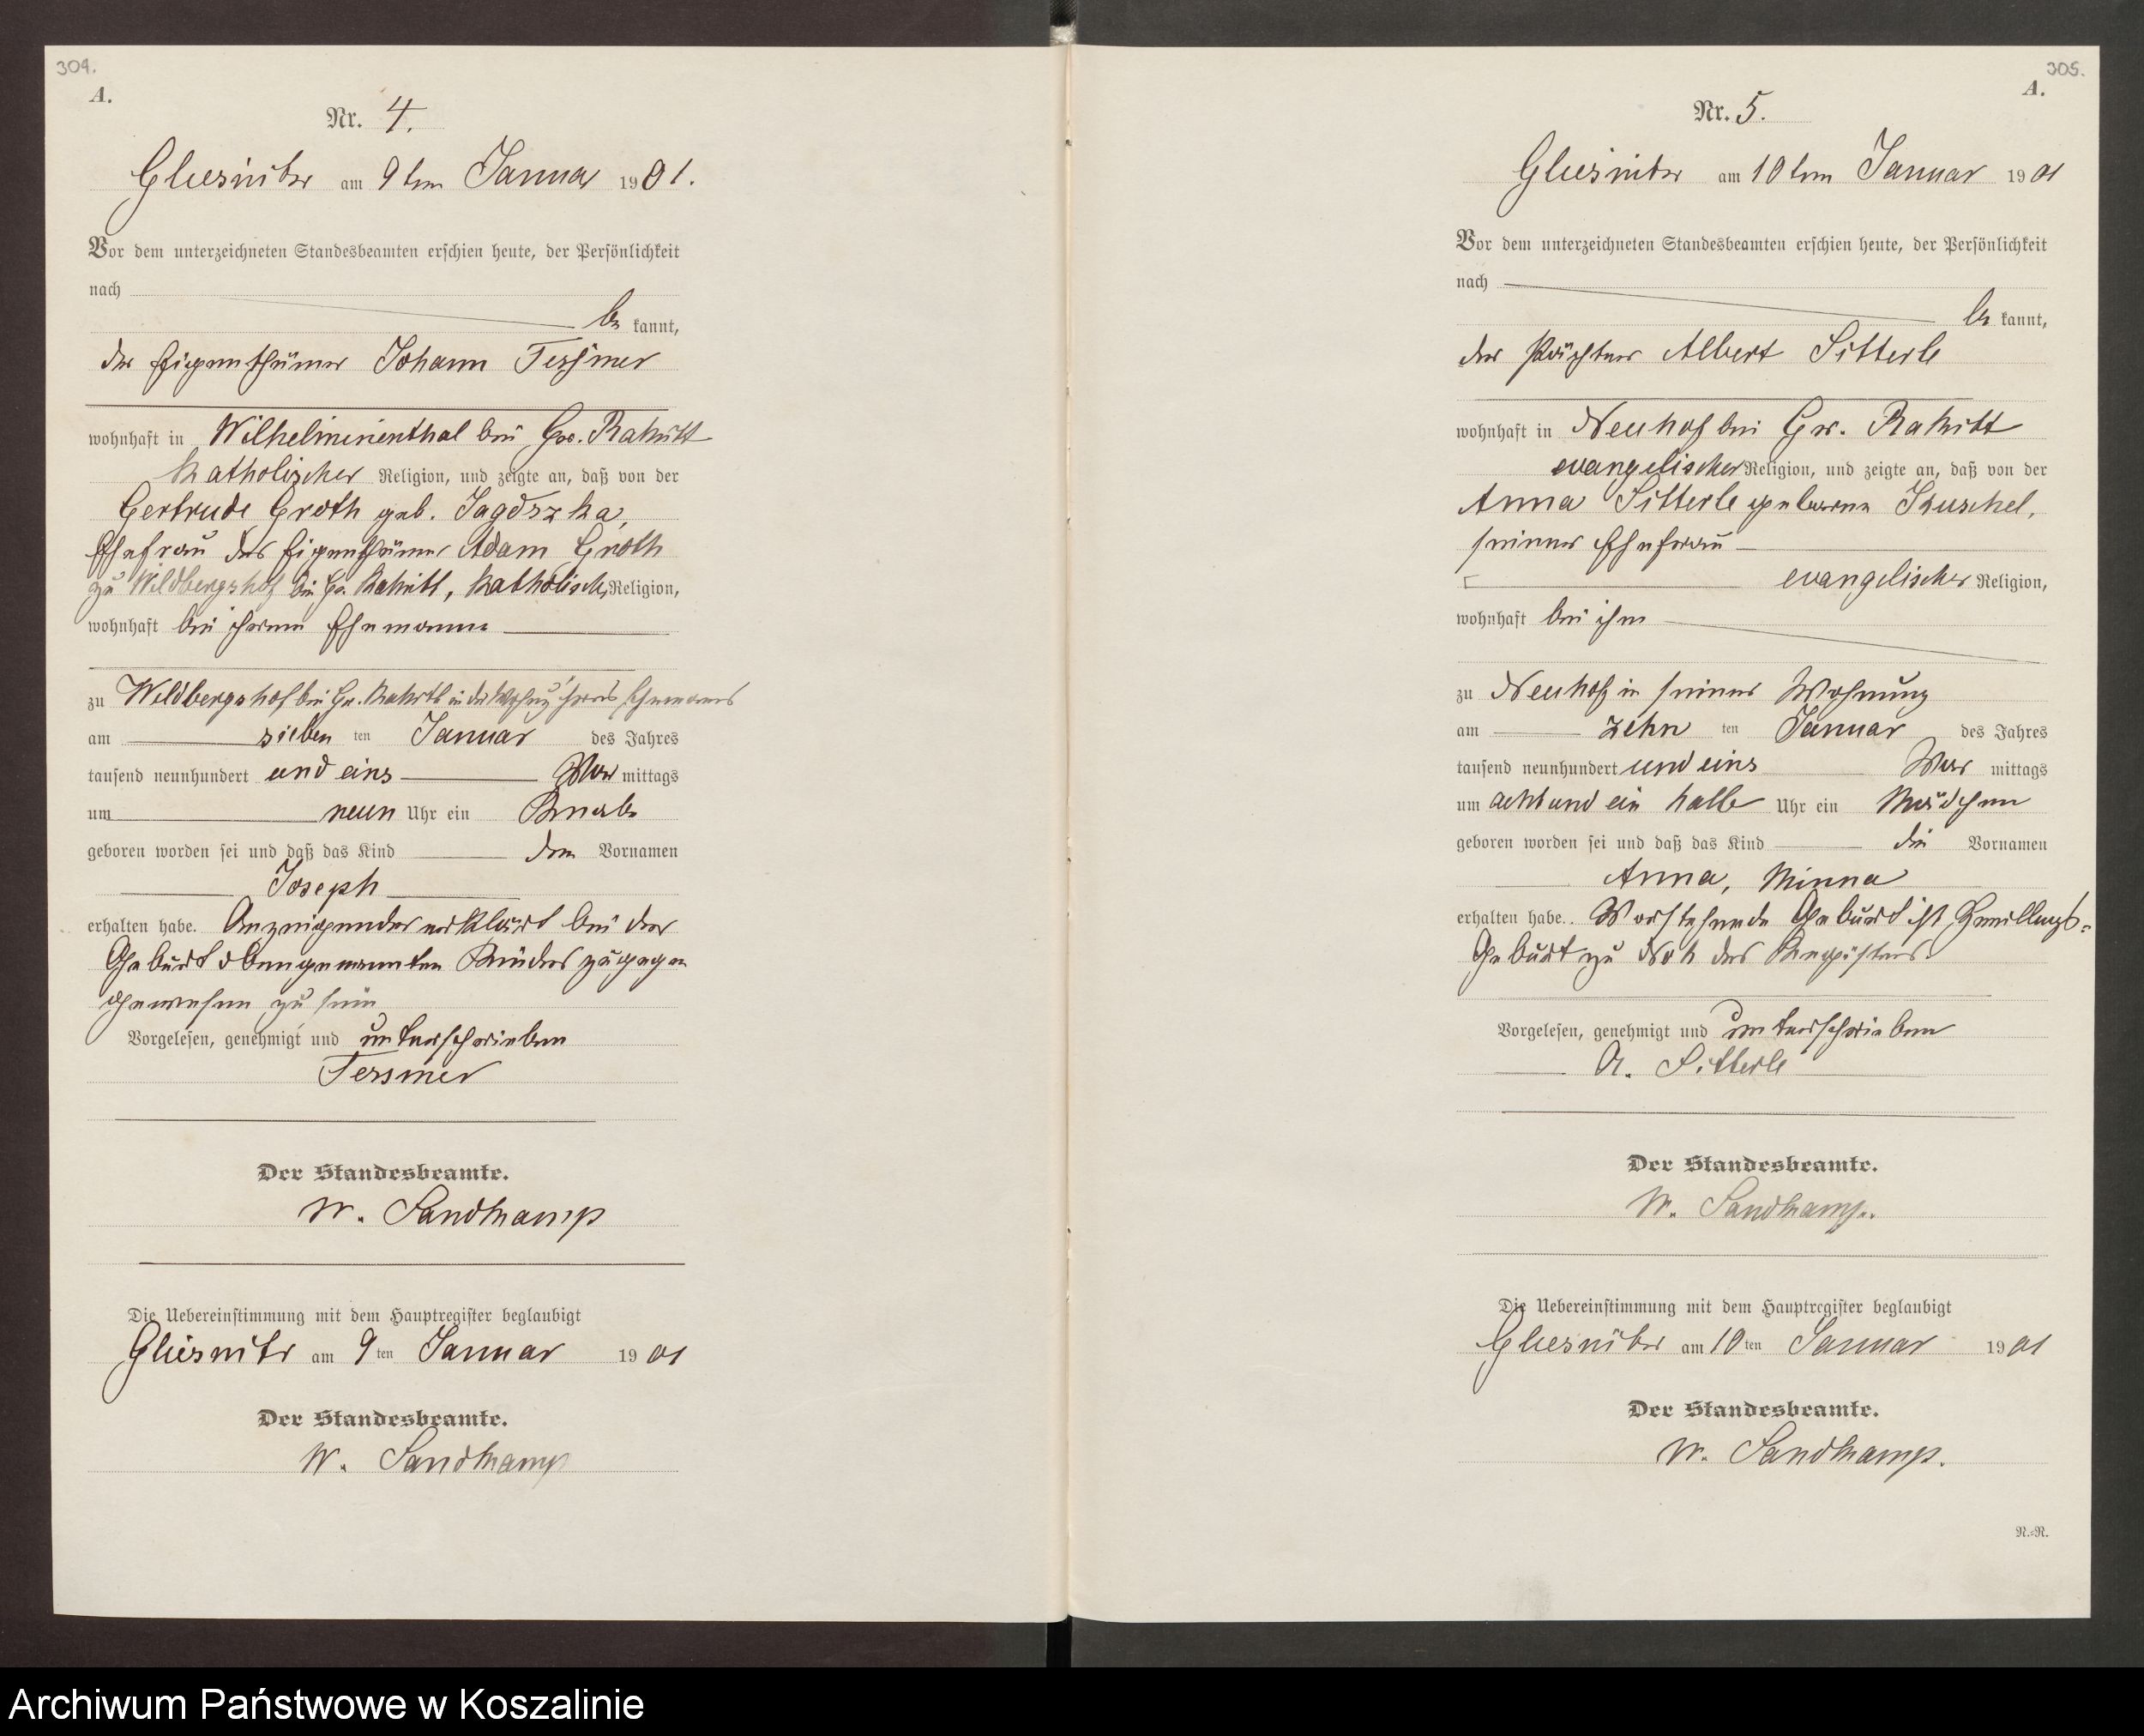 304.
A.
Nr. 4.
Gliesnitz am 9ten Januar 1901.
Vor dem unterzeichneten Standesbeamten erschien heute, der Persönlichkeit
nach
be kannt,
der Eigenthümer Johann Tessmer
wohnhaft in Wilhelminenthal bei Gr. Rakitt
katholischer Religion, und zeigte an, daß von der
Gertrude Groth geb. Jagdszka,
Ehefrau des Eigenthümer Adam Groth
zu Wildbergshof bei Gr. Rakitt, katholisch, Religion,
wohnhaft bei ihrem Ehemanne
zu Wildbergshof bei Gr. Rakitt in der Wohnung ihres Ehemannes
am sieben ten Januar des Jahres
tausend neunhundert und eins Vor mittags
um neun Uhr ein Knabe
geboren worden sei und daß das Kind den Vornamen
Joseph
erhalten habe. Anzeigender erklärt bei der
Geburt obengenannten Kindes zugegen
gewesen zu sein
Vorgelesen, genehmigt und unterschrieben
Tessmer
Der Standesbeamte.
W. Sandkamp
Die Uebereinstimmung mit dem Hauptregister beglaubigt
Gliesnitz am 9ten Januar 1901
Der Standesbeamte.
W. Sandkamp
305.
A.
Nr. 5.
Gliesnitz am 10ten Januar 1901
Vor dem unterzeichneten Standesbeamten erschien heute, der Persönlichkeit
nach
be kannt,
der Pächter Albert Sitterle
wohnhaft in Neuhof bei Gr. Rakitt
evangelischer Religion, und zeigte an, daß von der
Anna Sitterle geborne Kuschel,
seiner Ehefrau
evangelischer Religion,
wohnhaft bei ihm
zu Neuhof in seiner Wohnung
am zehn ten Januar des Jahres
tausend neunhundert und eins Vor mittags
um acht und ein halb Uhr ein Mädchen
geboren worden sei und daß das Kind die Vornamen
Anna, Minna
erhalten habe. Vorstehende Geburt ist Zwillings-
Geburt zu des Registers
Vorgelesen, genehmigt und unterschrieben
A. Sitterle
Der Standesbeamte.
W. Sandkamp.
Die Uebereinstimmung mit dem Hauptregister beglaubigt
Gliesnitz am 10ten Januar 1901
Der Standesbeamte.
W. Sandkamp.
N.-N.
Archiwum Państwowe w Koszalinie